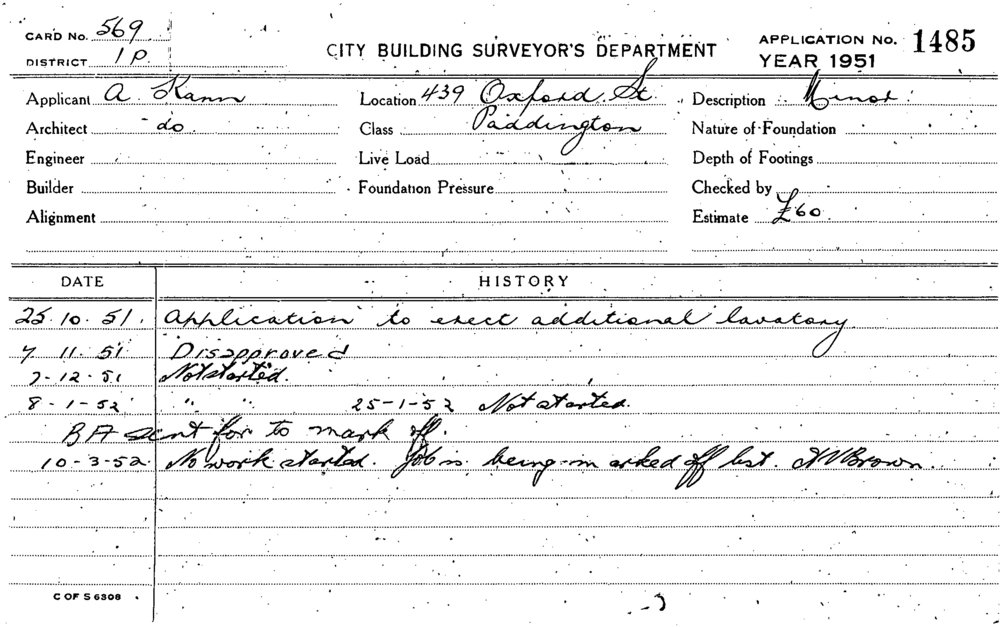 CARD No. 569
DISTRICT 1 P.
CITY BUILDING SURVEYOR'S DEPARTMENT
APPLICATION No. 1485
YEAR 1951
Applicant A. Kann Location 439 Oxford St. Description Minor
Architect do Class Paddington Nature of Foundation
Engineer Live Load Depth of Footings
Builder Foundation Pressure Checked by
Alignment Estimate £60
DATE HISTORY
25.10.51. Application to erect additional lavatory
7 11. 51 Disapproved
7-12.51 Not started.
8-1-52 " " 25-1-52 Not started.
BA sent for to mark off.
10-3-52. No work started. Job is being marked off list. Brown.
C OF S 6308